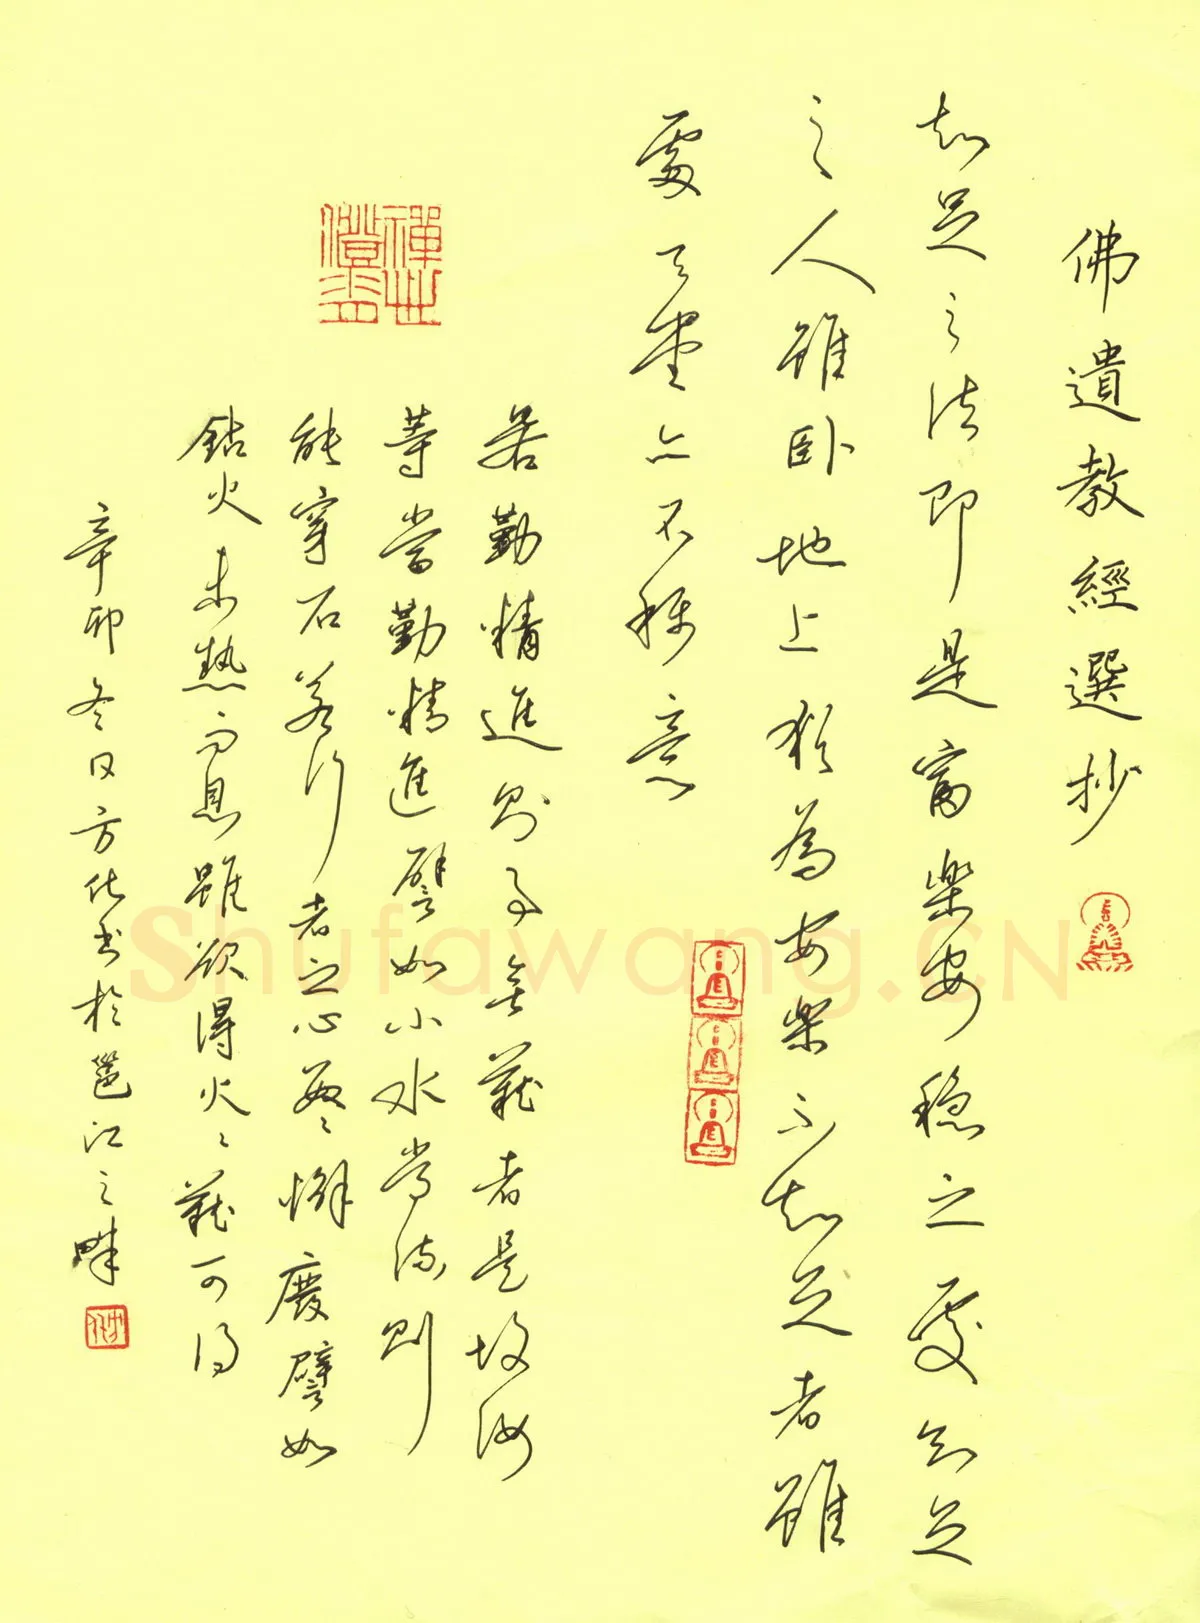 佛遺教經選抄
知足之法即是富樂安穩之處知足
之人雖卧地上猶為安樂不知足者雖
處天堂亦不稱意
若勤精進則事無難者是故汝
等當勤精進譬如小水常流則
能穿石若行者之心數〻懈廢譬如
鉆火未熱而息雖欲得火〻難可得
辛卯冬日方化書於邕江之畔
Shufawang.CN